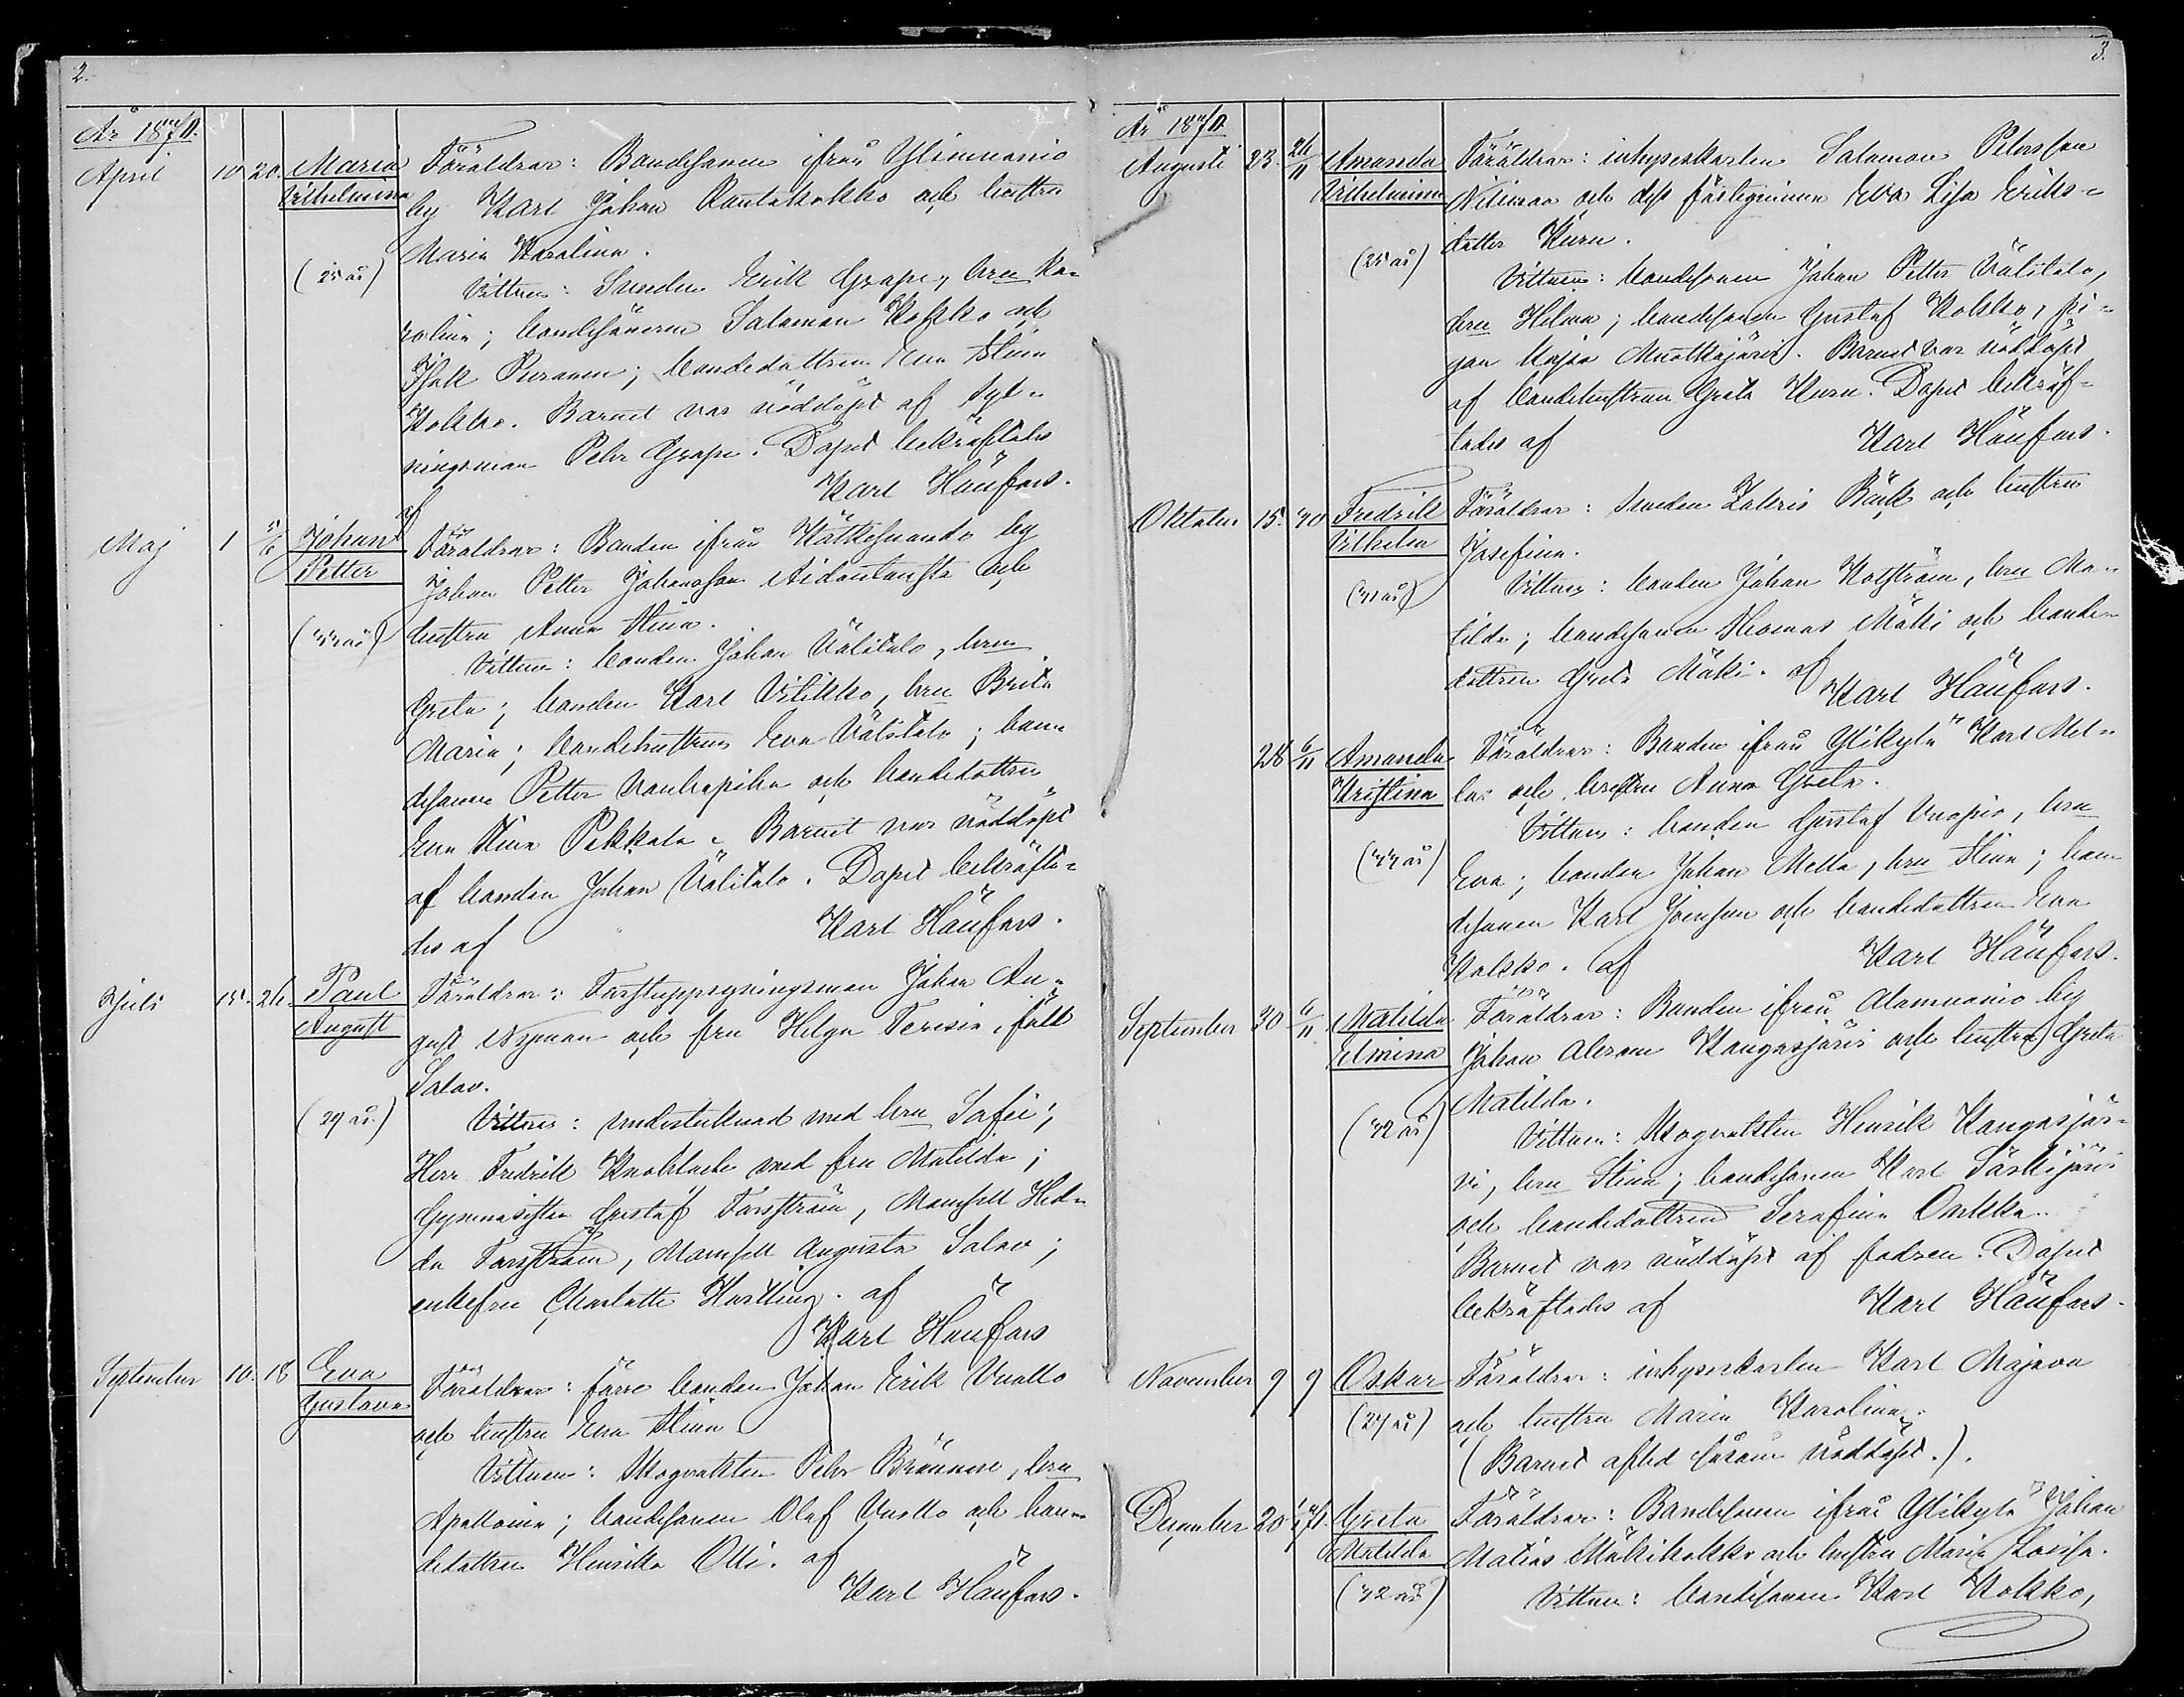 2.
År 1870.
April 10 20. Maria Vilhelmina (25 år)
Föräldrar: Bondesonen ifrån Ylimuonio
by Karl Johan Rautakokko och hustru
Maria Karolina.
Vittnen: Smeden Erik Grape, hru Ka-
rolina; bondesönerne Salamon Kokko och
Isak Puranen; bondedottren Eva Stina
Kokko. Barnet var nöddöpt af Syt-
ningsman Pehr Grape. Dopet bekräftades
af Karl Hänfors.
Maj 1 5/6 Johan Petter (33 år)
Föräldrar: Bonden ifrån Kätkesuando by
Johan Petter Johansson och
hustru Anna Stina.
Vittnen: bonden Johan Välitalo, hru
Greta; bonden Karl Vilikko, hru Brita
Maria; bondehustrun Eva Välitalo; bon-
desonen Petter Vanhapiha och bondedottren
Eva Stina Pekkala. Barnet var nöddöpt
af bonden Johan Välitalo. Dopet bekräfta-
des af Karl Hänfors.
Juli 15. 26. Paul August (29 år)
Föräldrar: Forstuppsyningsman Johan Au-
gust Nyman och fru Helga Teresia, född
Salov.
Vittnen: undertecknad med hru Sofie;
Herr Fredrik Knoblock med fru Matilda;
Gymnasisten Gustaf Forsström, Mamsell Hed-
da Forsström, Mamsell Augusta Salov;
enkefru Charlotte Hartling. af
Karl Hänfors
September 10. 18 Eva Gustava
Föräldrar: förre bonden Johan Erik Vuollo
och hustru Eva Stina
Vittnen: Skogvakten Pehr Brännare, hru
Apollonia; bondesonen Olof Vuollo och bon-
dedottren Henrika Olli. af
Karl Hänfors.
3.
År 1870
Augusti 23. 26/11 Amanda Vilhelmina (25 år)
Föräldrar: inhyseskarlen Salamon Petersson
Niliman och dess fästeqvinna Eva Lisa Eriks-
dotter Kuru.
Vittnen: bondesonen Johan Petter Välitalo,
hru Hilma; bondesonen Gustaf Kokko, pi-
gan Kajsa Muotkajärvi. Barnet var nöddöpt
af bondehustrun Greta Kuru. Dopet bekräf-
tades af Karl Hänfors.
Oktober 15. 30 Fredrik Vilhelm (31 år)
Föräldrar: Smeden Bäck och hustru
Josefina.
Vittnen: bonden Johan Kolström, hru Ma-
tilda; bondesonen Thomas Mäki och bonde-
dottren Greta Mäki. af Karl Hänfors.
28 6/11 Amanda Kristina (33 år)
Föräldrar: Bonden ifrån Ylikylä Karl Mel-
la och hustru Anna Greta.
Vittnen: bonden Gustaf Vuopio, hru
Eva; bonden Johan Mella, hru Stina; bon-
desonen Karl Joensuu och bondedottren Eva
Kokko. af Karl Hänfors.
September 30 6/11 Matilda Elmina (32 år)
Föräldrar: Bonden ifrån Alamuonio by
Johan Abram Kangasjärvi och hustru Greta
Matilda.
Vittnen: Skogvakten Henrik Kangasjär-
vi, hru Stina; bondesonen Karl Särkijärvi
och bondedottren Serafina Outkka.
Barnet var nöddöpt af fadren. Dopet
bekräftades af Karl Hänfors.
November 9 9 Oskar (24 år)
Föräldrar: inhyseskarlen Karl Majava
och hustru Maria Karolina.
(Barnet afled såsom nöddöpt.).
December 20 1/1 71. Greta Matilda (32 år)
Föräldrar: Bondesonen ifrån Ylikylä Johan
Matias Mäkikokko och hustru Maria Lovisa.
Vittnen: bondesonen Karl Kokko,